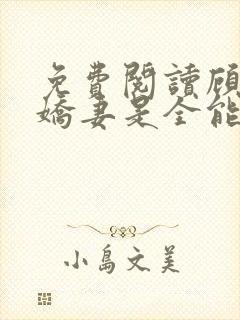 免費閱讀顧
嬌妻是全能
小島文美